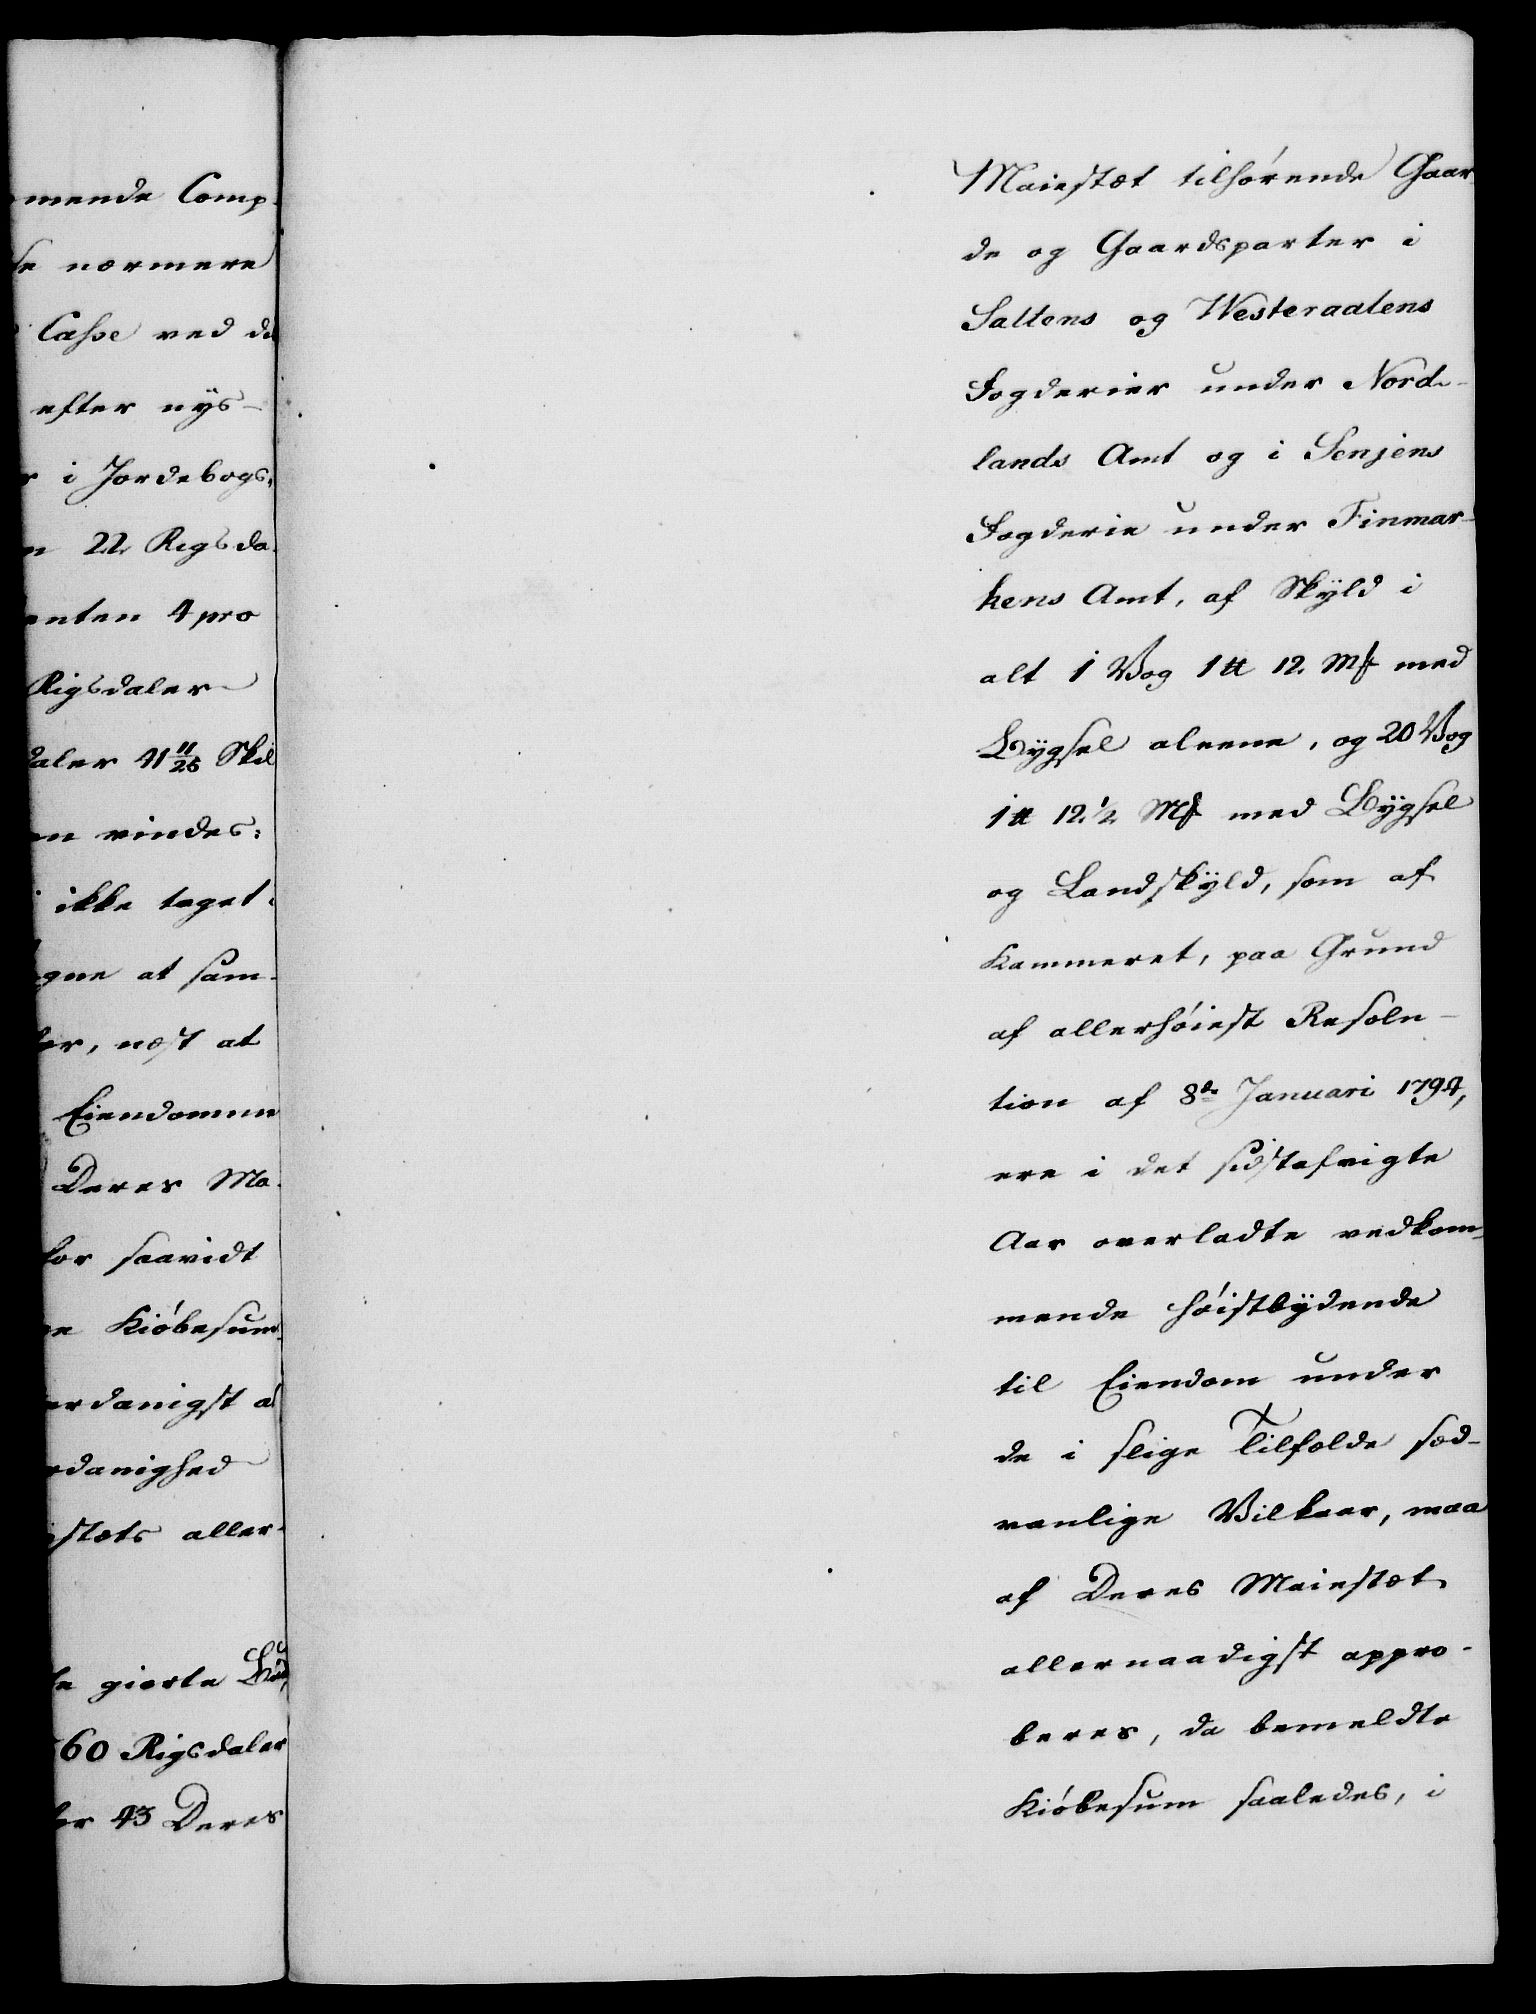 mende Comp-
se nærmere
Casse ved de
efter nys-
r i Jordebogs-
n 22 Rigsda-
enten 4 pro
Rigsdaler
daler 41 11/25 Skil
en vindes:
ikke taget:
gne at sam-
ler, næst at
Eiendommen
Deres Ma-
for saavidt
ne Kiöbesum-
erdanigst a
rdanighed
estæts aller-
te giorte Bud,
60 Rigsdaler
for 43 Deres
Maiestæt tilhørende Gaar-
de og Gaardsparter i
Saltens og Westeraalens
Fogderier under Nord-
lands Amt og i Senjens
Fogderie under Finmar-
kens Amt, af Skyld i
alt 1 Vog 1 ℔ 12 Mk med
Bygsel aleene, og 20 Vog
1 ℔ 12 1/2 Mk med Bygsel
og Landskyld, som af
Kammeret, paa Grund
af allerhøiest Resolu-
tion af 8de Januari 1794,
ere i det sidstafvigte
Aar overladte vedkom-
mende høistbydende
til Eiendom under
de i slige Tilfælde sæd-
vanlige Vilkaar, maa
af Deres Maiestæt
allernaadigst appro-
beres, da bemeldte
Kiöbesum saaledes, i